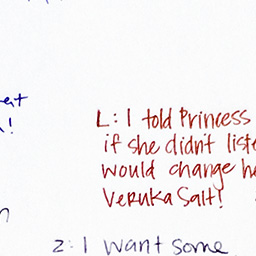 L: I told Princess
if she didn't liste
would change he
Veruka Salt!
z: I want some